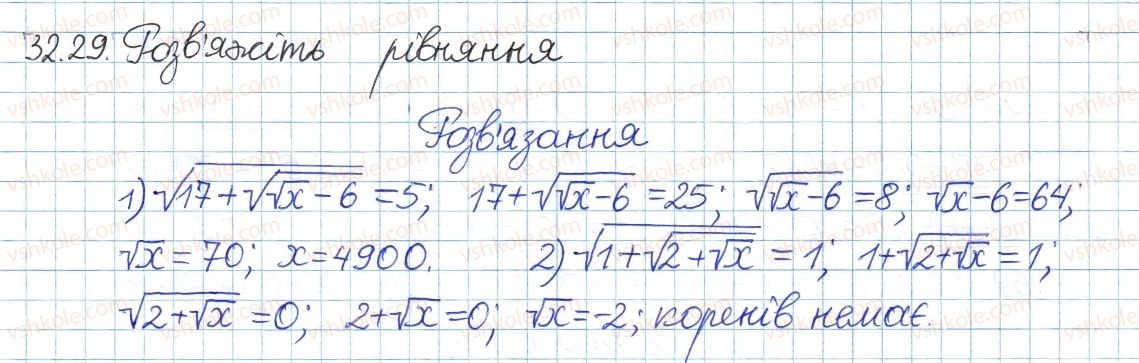 32.29. Розв'яжіть рівняння
Розв'язання
1) √(17+√(√x-6)) = 5; 17+√(√x-6) = 25; √(√x-6) = 8; √x-6=64;
√x = 70; x=4900. 2) √(1+√(2+√x)) = 1; 1+√(2+√x) = 1;
√(2+√x) = 0; 2+√x = 0; √x = -2; коренів немає.
vshkole.com